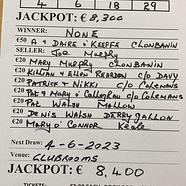 4 6 18 29
JACKPOT: € 8,300
WINNER: NONE
€50 A + DAIRE O'KEEFFE CLONBANIN
SELLER: JOE MURPHY
€20 MARY MURPHY CLONBANIN
€20 KILLIAN & ELLEN REARDON C/O DAVY
€20 PATRICK & NIKKI C/O COLEMANS
€20 PAT & MARY O'CALLAGHAN C/O COLEMANS
€20 PAT WALSH MALLOW
€20 DENIS WALSH DERRYGALLON
€20 MARY O'CONNOR KEALE
Next Draw: 4-6-2023
VENUE: CLUBROOMS
JACKPOT: € 8,400